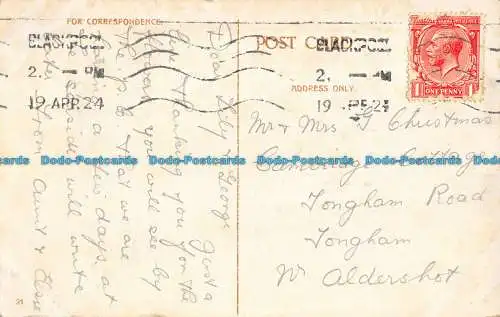 FOR CORRESPONDENCE
POST CARD
ADDRESS ONLY.
BLACKPOOL
2. — PM
19 APR 24
BLACKPOOL
2. — PM
19 APR 24
1 ONE PENNY 1
Dear Lily & George
Just a
line thanking you for the
you will see by
the p.c. that we are
a few days at
the seaside will write
later from Aunt & Elsie
Mr & Mrs G Christmas
Cambridge Cottage
Tongham Road
Tongham
Nr Aldershot
21
Dodo-Postcards Dodo-Postcards Dodo-Postcards Dodo-Postcards